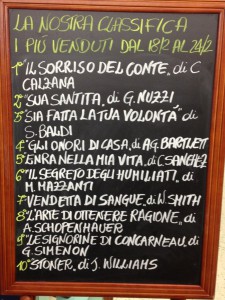 LA NOSTRA CLASSIFICA
I PIÙ VENDUTI DAL 18/2 AL 24/2
1° "IL SORRISO DEL CONTE" di C
CALZANA
2° "SUA SANTITÀ" di G. NUZZI
3° "SIA FATTA LA TUA VOLONTÀ" di
S. BALDI
4° "GLI ONORI DI CASA" di AG. BARTLETT
5° "ENTRA NELLA MIA VITA" di C. SANCHEZ
6° "IL SEGRETO DEGLI HUMILIATI" di
M. MAZZANTI
7° VENDETTA DI SANGUE di W. SMITH
8° "L'ARTE DI OTTENERE RAGIONE" di
A. SCHOPENHAUER
9° "LE SIGNORINE DI CONCARNEAU" di
G. SIMENON
10° "STONER" di J. WILLIAMS